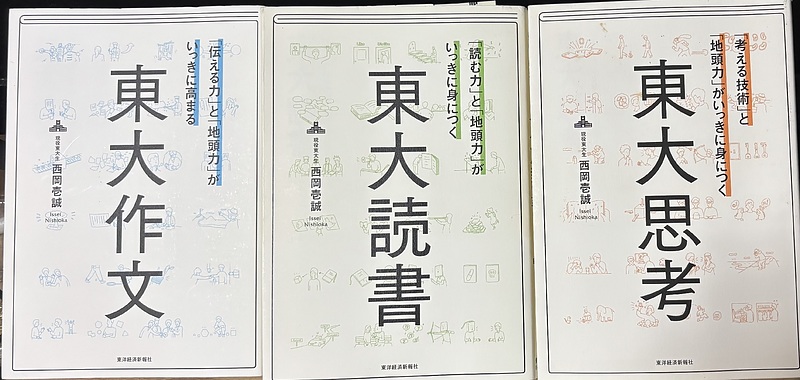 「伝える力」と「地頭力」が
いっきに高まる
東大作文
現役東大生
西岡壱誠
Issei
Nishioka
東洋経済新報社
「読む力」と「地頭力」が
いっきに身につく
東大読書
現役東大生
西岡壱誠
Issei
Nishioka
東洋経済新報社
「考える技術」と
「地頭力」がいっきに身につく
東大思考
現役東大生
西岡壱誠
Issei
Nishioka
東洋経済新報社